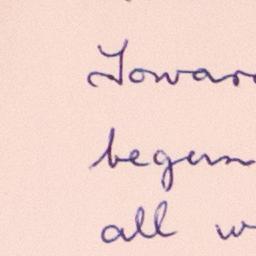 Towar
begun
all w